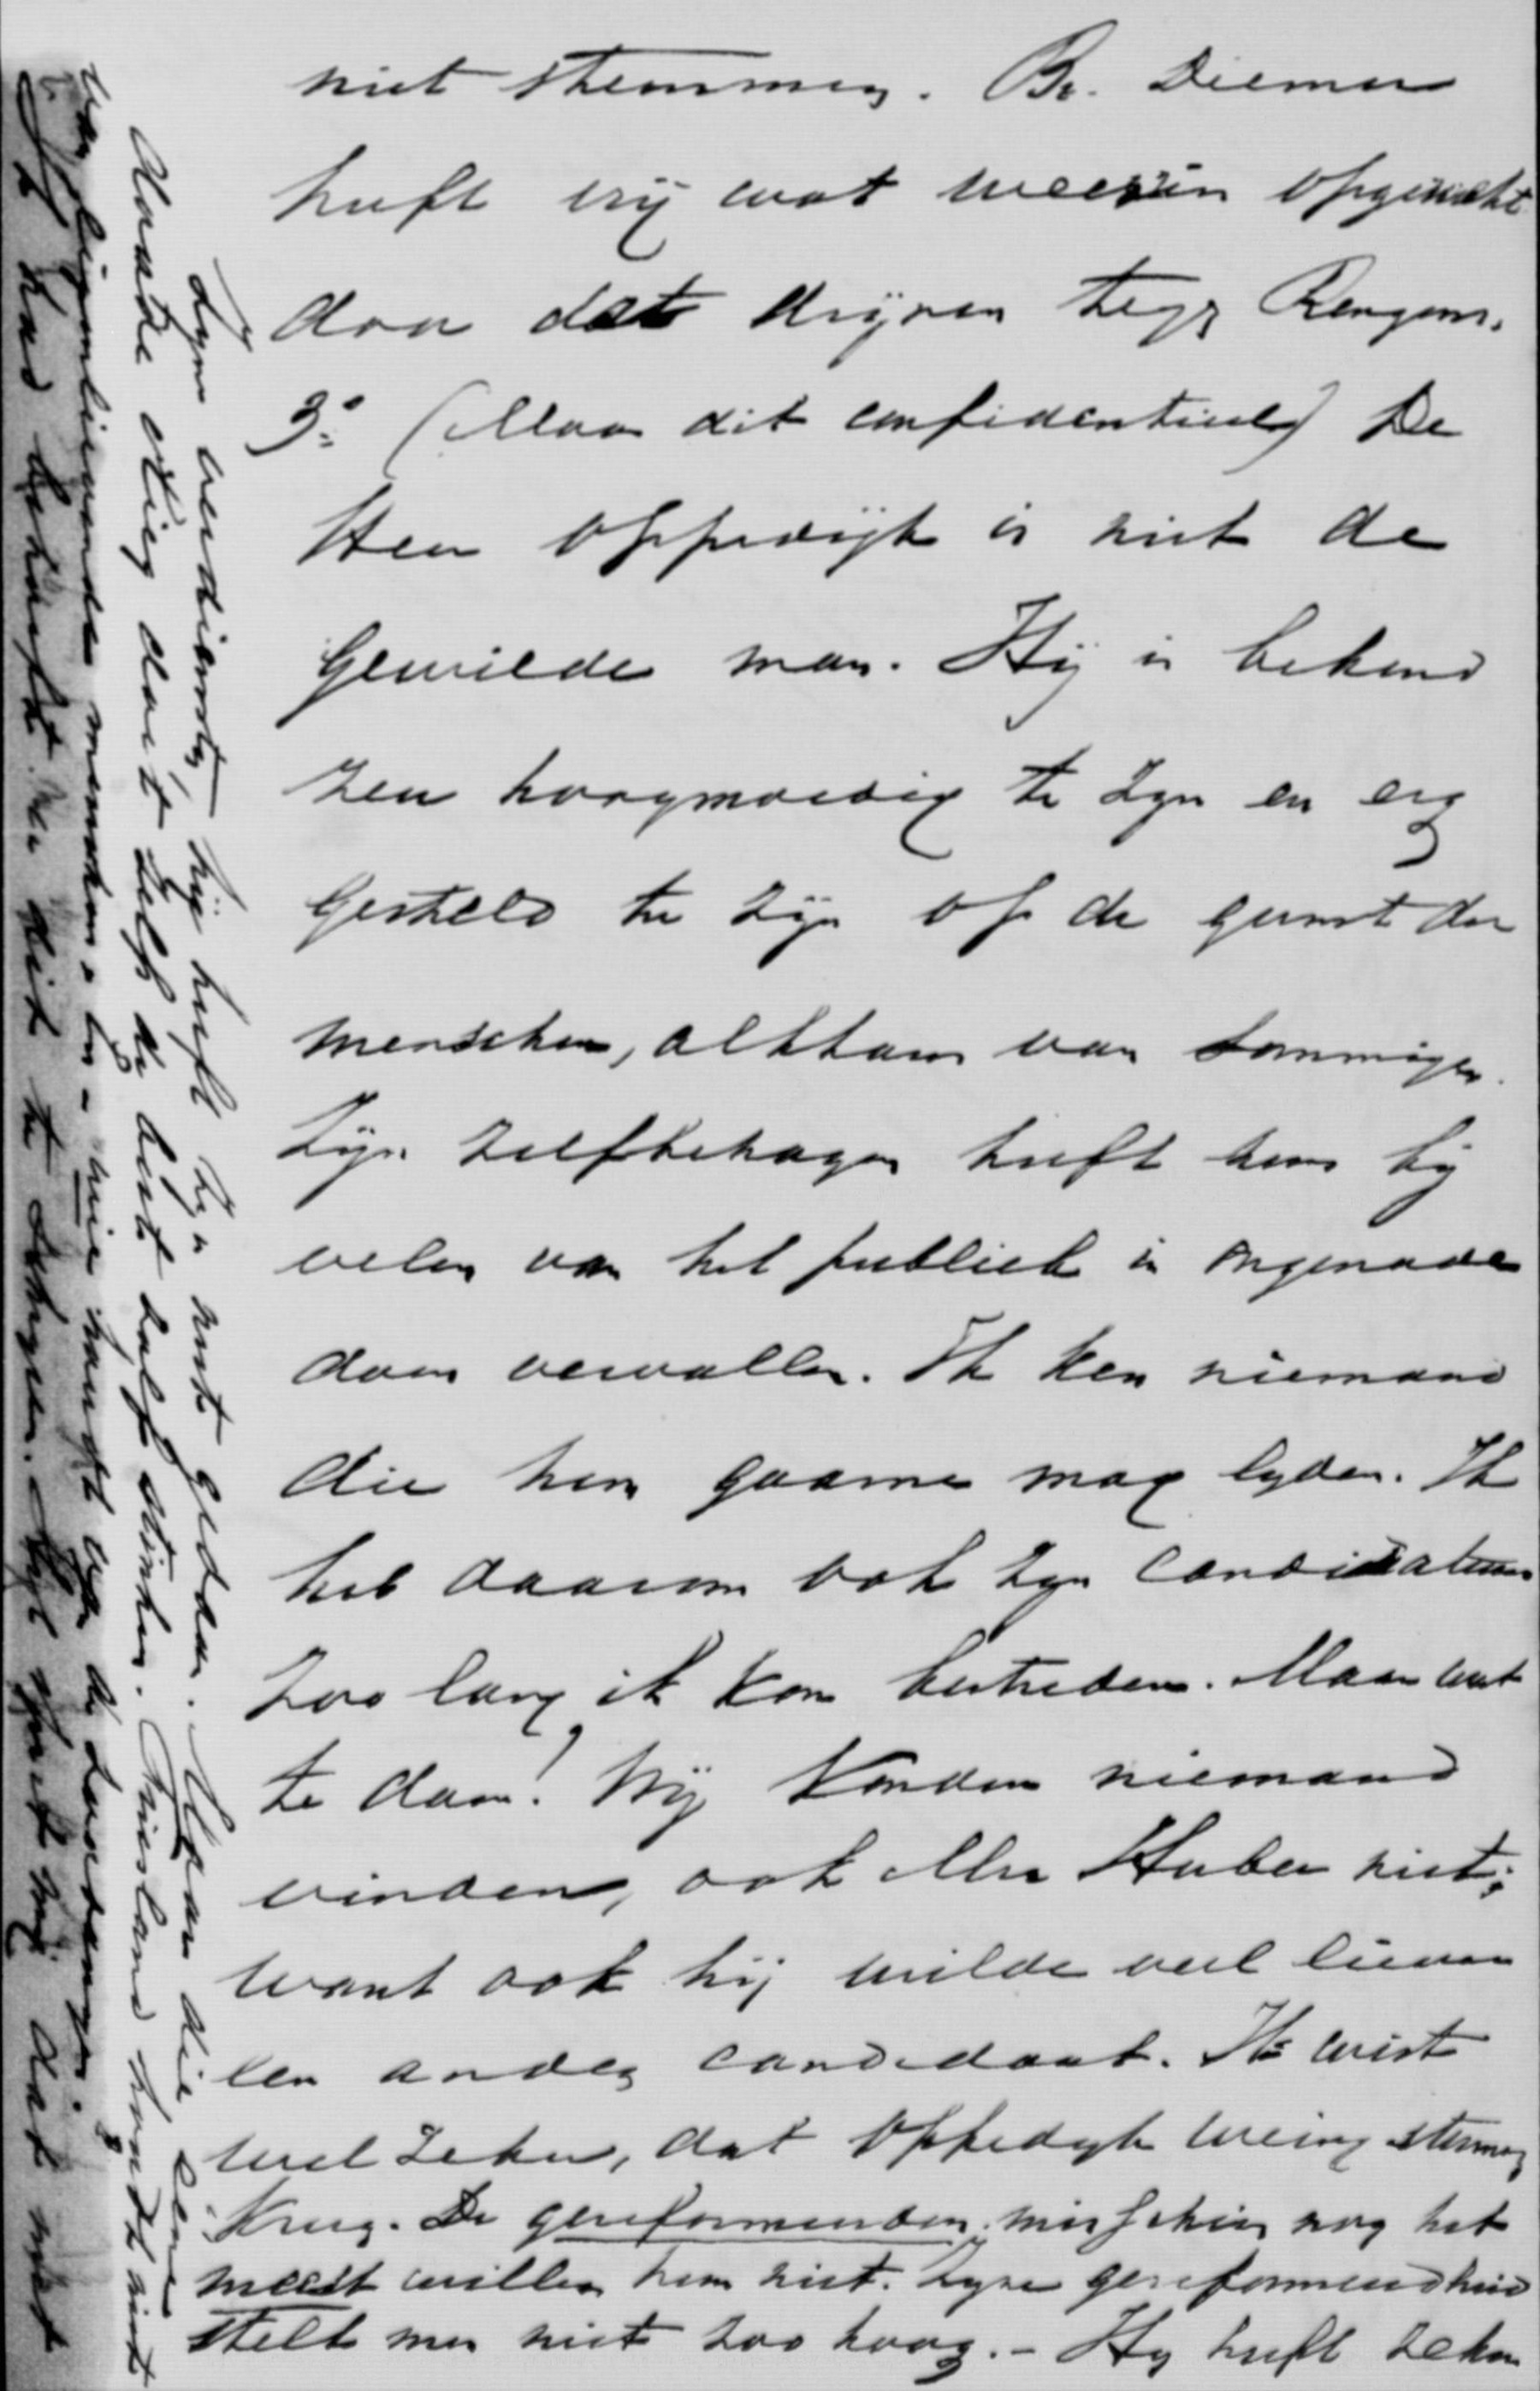 niet stemmen. Br. Diemer
heeft vrij wat weerzin opgewekt
door dat drijven tegen Rengers.
3o. (Maar dit confidentieel) De
Heer Oppedijk is niet de
gewilde man. Hij is bekend
zeer hoogmoedig te zyn en erg
gesteld te zijn op de gunst der
menschen, althans van sommigen.
Zijn zelfbehagen heeft hem bij
velen van het publiek in ongenade
doen vervallen. Ik ken niemand
die hem gaarne mag lyden. Ik
heb daarom ook zyn candidatuur
zoo lang ik kon bestreden. Maar wat
te doen! Wij konden niemand
vinden, ook Mr Huber niet;
want ook hij wilde veel liever
een ander candidaat. Ik wist
wel zeker, dat Oppedyk weinig stemmen
kreeg. De gereformeerden misschien nog het
meest willen hem niet. Zyne gereformeerdheid
stelt men niet zoo hoog. - Hy heeft zeker
zyne verdiensten, hij heeft zyn best gedaan. Maar die eene
daarbij houdt niet
van bijomlievende menschen. En - hier hangt van de
Ik had behoefte u dit te schryven. Het spijt mij dat niet